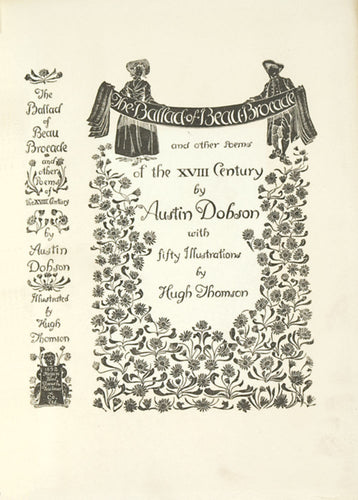 The
Ballad
of
Beau
Brocade
and
other
Poems
of
the XVIII Century
by
Austin
Dobson
Illustrated
by
Hugh
Thomson
The Ballad of Beau Brocade
and other Poems
of the XVIII Century
by
Austin Dobson
with
fifty Illustrations
by
Hugh Thomson